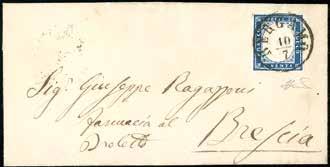 BERGAMO
10
7
VENTI
Sig. Giuseppe Ragazzoni
farmacia al
Broletto
Brescia